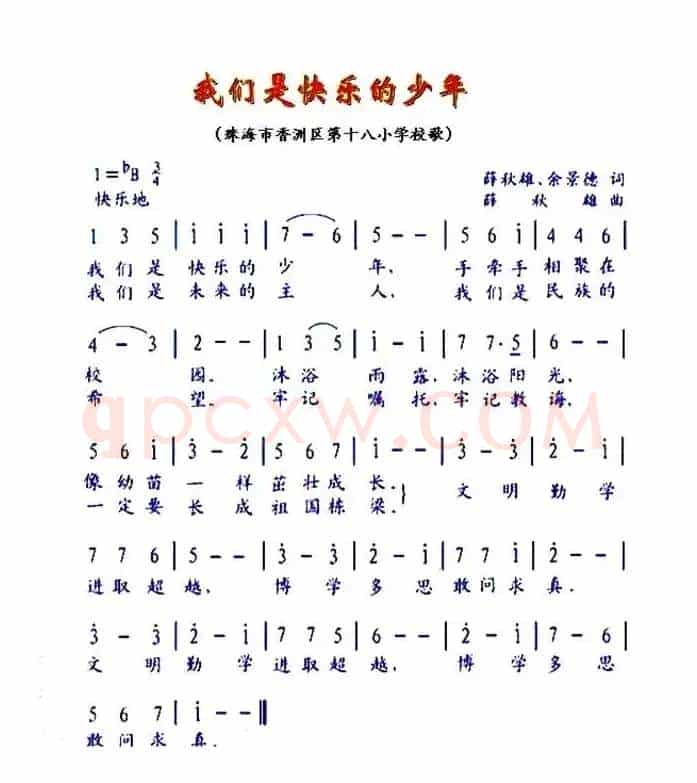 我们是快乐的少年
(珠海市香洲区第十八小学校歌)
1=♭B 3/4
薛秋雄、余景德 词
快乐地
薛秋雄 曲
1 3 5 | i i i | 7 - 6 | 5 - - | 5 6 i | 4 4 6 |
我们是 快乐的 少 年, 手牵手 相聚在
我们是 未来的 主 人, 我们是 民族的
4 - 3 | 2 - - | i 3 5 | i - i | 7 7· 5 | 6 - - |
校 园, 沐浴 雨露,沐浴阳光,
希 望, 牢记 嘱托,牢记教诲,
5 6 i | 3̇ - 2̇ | 5 6 7 | i - - | 3̇ - 3̇ | 2̇ - i |
像幼苗 一 样 茁壮成长. } 文 明 勤 学
一定要 长 成 祖国栋梁.
7 7 6 | 5 - - | 3̇ - 3̇ | 2̇ - i | 7 7 i | 2̇ - - |
进取超越, 博 学 多 思 敢问求真.
3̇ - 3̇ | 2̇ - i | 7 7 5 | 6 - - | 2̇ - 2̇ | 2̇ - i |
文 明 勤 学 进取超越, 博 学 多 思
5 6 7 | i - - ‖
敢问求真.
qpcxw.COM